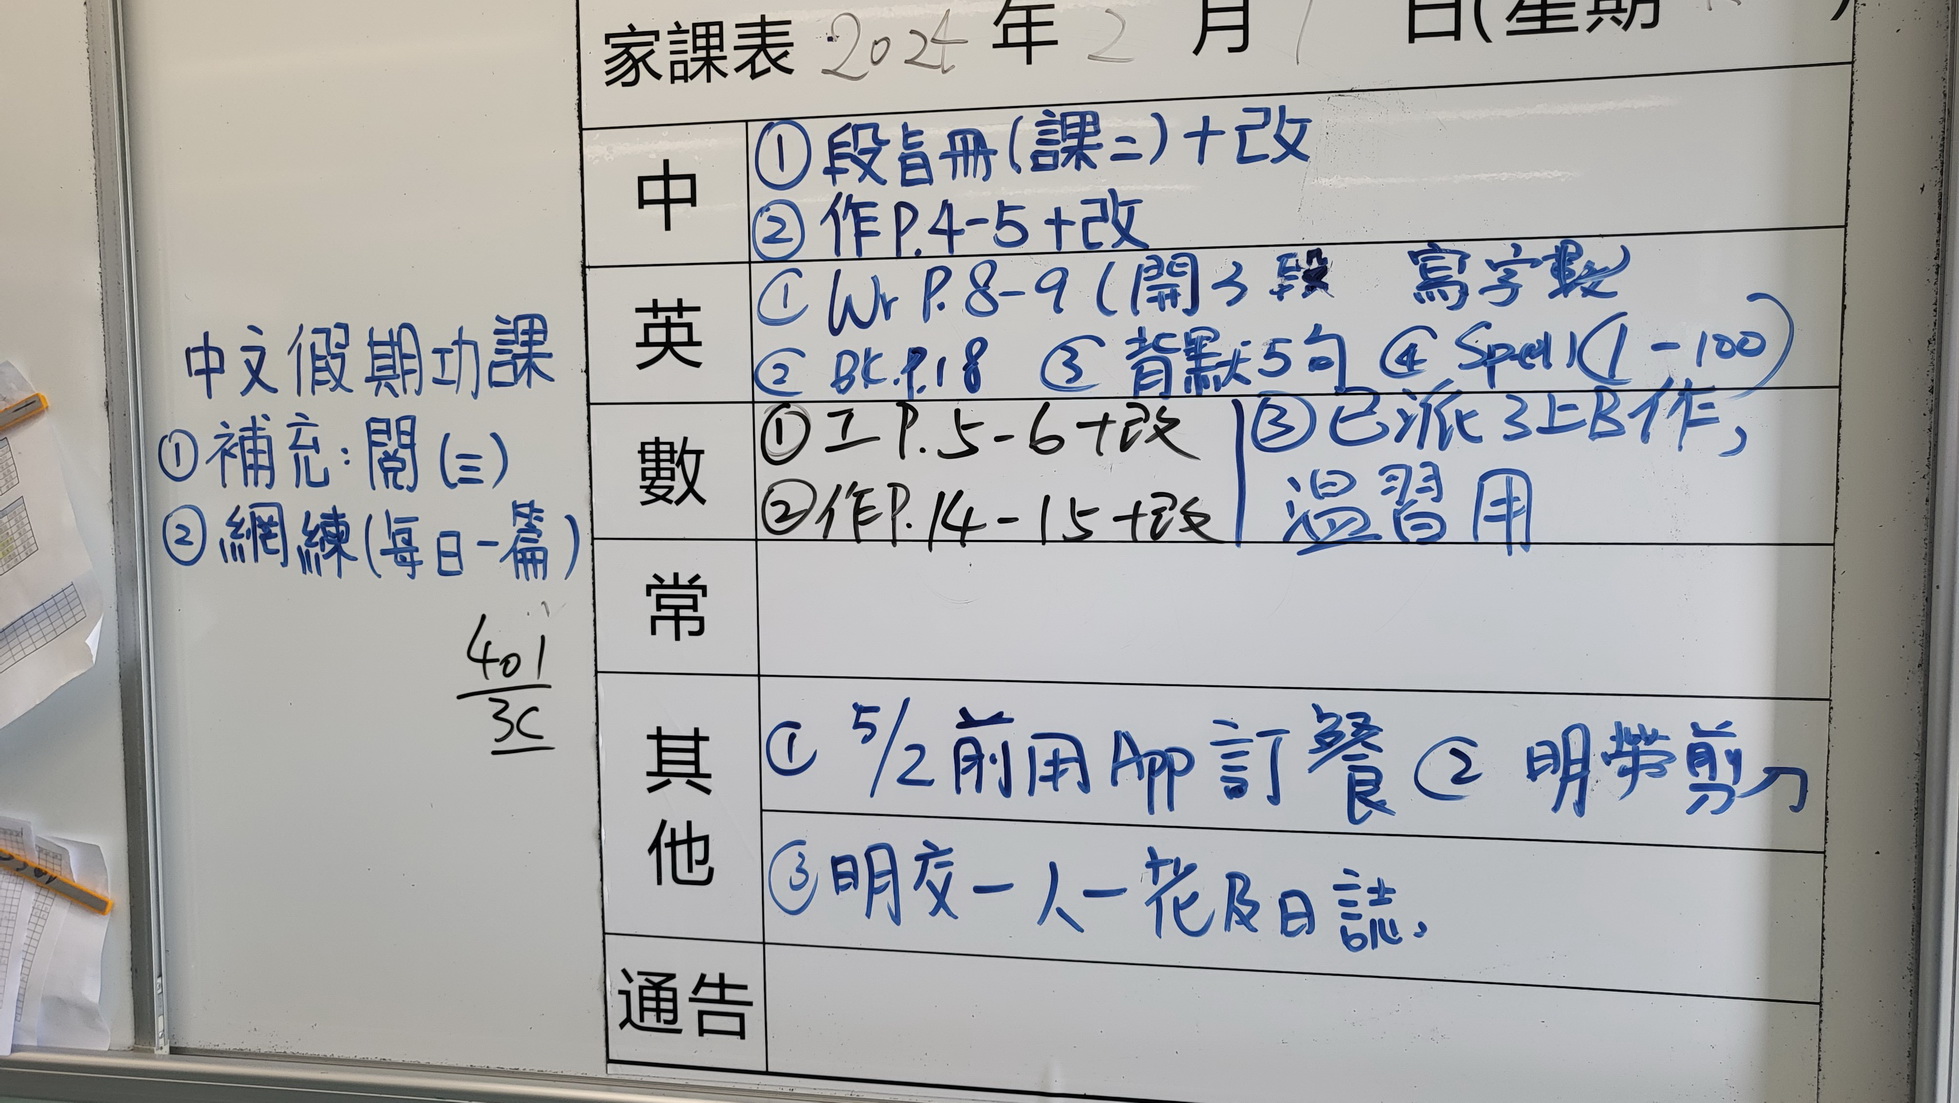 家課表 2024 年 2 月 1 日(星期 )
中
①段旨冊(課二)+改
②作P.4-5+改
英
①Wr P.8-9 (開3段 寫字數
②BK.P.18 ③背默5句 ④Spell(1-100)
數
①工P.5-6+改
②作P.14-15+改
③已派3上B作,
溫習用
常
其他
①5/2前用App訂餐 ②明帶剪刀
③明交一人一花及日誌.
通告
中文假期功課
①補充:閱(三)
②網練(每日一篇)
401
3C